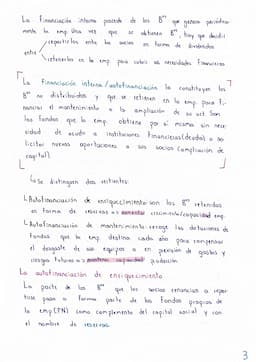 La financiación interna procede de los Bºˢ que genera periódica-
mente la emp. Una vez que se obtienen Bºˢ, hay que decidir
repartirlos entre los socios en forma de dividendos
entre
retenerlos en la emp. para cubrir sus necesidades financieras
La financiación interna/autofinanciación la constituyen los
Bºˢ no distribuidos y que se retienen en la emp. para fi-
nanciar el mantenimiento o la ampliación de su act. Son
los fondos que la emp. obtiene por sí misma sin nece-
sidad de acudir a instituciones financieras (deudas) o so-
licitar nuevas aportaciones a sus socios (ampliación de
capital).
↳ Se distinguen dos vertientes:
↳ Autofinanciación de enriquecimiento: son los Bºˢ retenidos
en forma de reservas => aumentar crecimiento/capacidad emp.
↳ Autofinanciación de mantenimiento: recoge las dotaciones de
fondos que la emp. destina cada año para compensar
el desgaste de sus equipos o en previsión de gastos y
riesgos futuros => mantener capacidad producción.
La autofinanciación de enriquecimiento
La parte de los Bºˢ que los socios renuncian a repar-
tirse pasa a formar parte de los fondos propios de
la emp (PN) como complemento del capital social y con
el nombre de reservas.
3